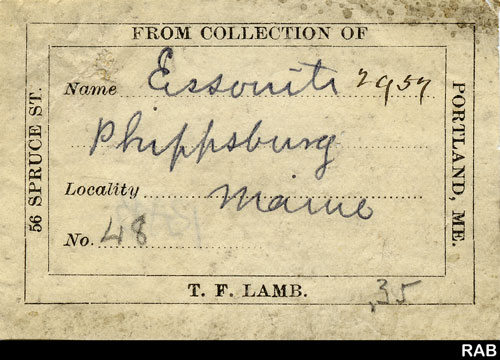 FROM COLLECTION OF
56 SPRUCE ST.
PORTLAND, ME.
Name Essonite 2957
Phippsburg
Locality Maine
No. 48
T. F. LAMB.
.35
RAB